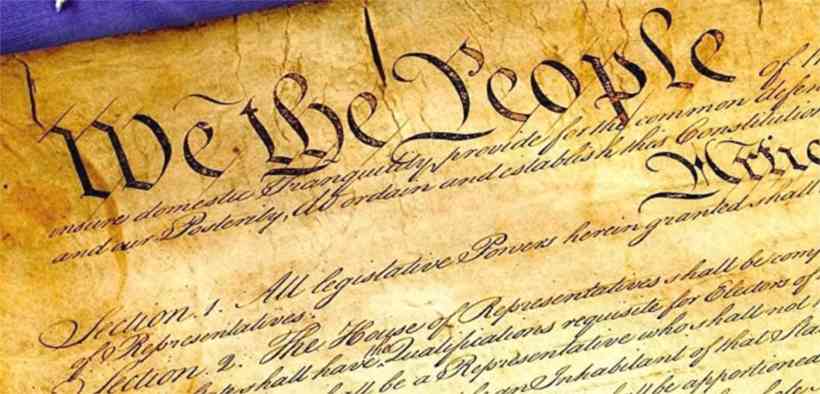 We the People
insure domestic Tranquility, provide for the common defen
and our Posterity, do ordain and establish this Constitution
Artic
Section. 1. All legislative Powers herein granted shall
of Representatives.
Section. 2. The House of Representatives shall be comp
shall have the Qualifications requisite for Electors of
shall be a Representative who shall not
an Inhabitant of that Sta
shall be apportioned